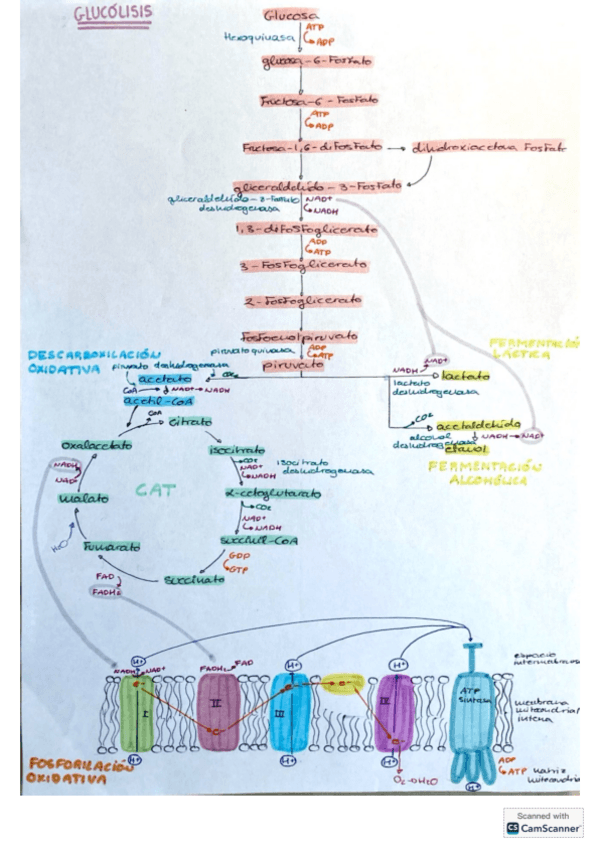 GLUCÓLISIS
Glucosa
ATP
Hexoquinasa
ADP
glucosa-6-Fosfato
Fructosa-6-Fosfato
ATP
ADP
Fructosa-1,6-diFosfato
dihidroxiacetona Fosfato
gliceraldehído-3-Fosfato
gliceraldehído-3-Fosfato
deshidrogenasa
NAD+
NADH
1,3-difosfoglicerato
ADP
ATP
3-Fosfoglicerato
2-Fosfoglicerato
Fosfoenolpiruvato
piruvatoquinasa
ADP
ATP
piruvato
DESCARBOXILACIÓN
OXIDATIVA
piruvato deshidrogenasa
acetato
CO2
CoA
NAD+
NADH
acetil-CoA
FERMENTACIÓN
LÁCTICA
NADH
NAD+
lactato
lactato
deshidrogenasa
CO2
acetaldehído
alcohol
deshidrogenasa
NADH
NAD+
etanol
FERMENTACIÓN
ALCOHÓLICA
CoA
citrato
oxalacetato
isocitrato
CO2
NAD+
NADH
isocitrato
deshidrogenasa
NADH
NAD+
malato
CAT
α-cetoglutarato
CO2
NAD+
NADH
H2O
Fumarato
succinil-CoA
GDP
GTP
FAD
FADH2
succinato
H+
NADH
NAD+
FADH2
FAD
H+
H+
espacio
e-
e-
e-
I
II
III
IV
e-
ATP
sintasa
membrana
mitocondrial
interna
H+
H+
H+
O2
H2O
H+
ADP
ATP
matriz
FOSFORILACIÓN
OXIDATIVA
Scanned with
CS CamScanner